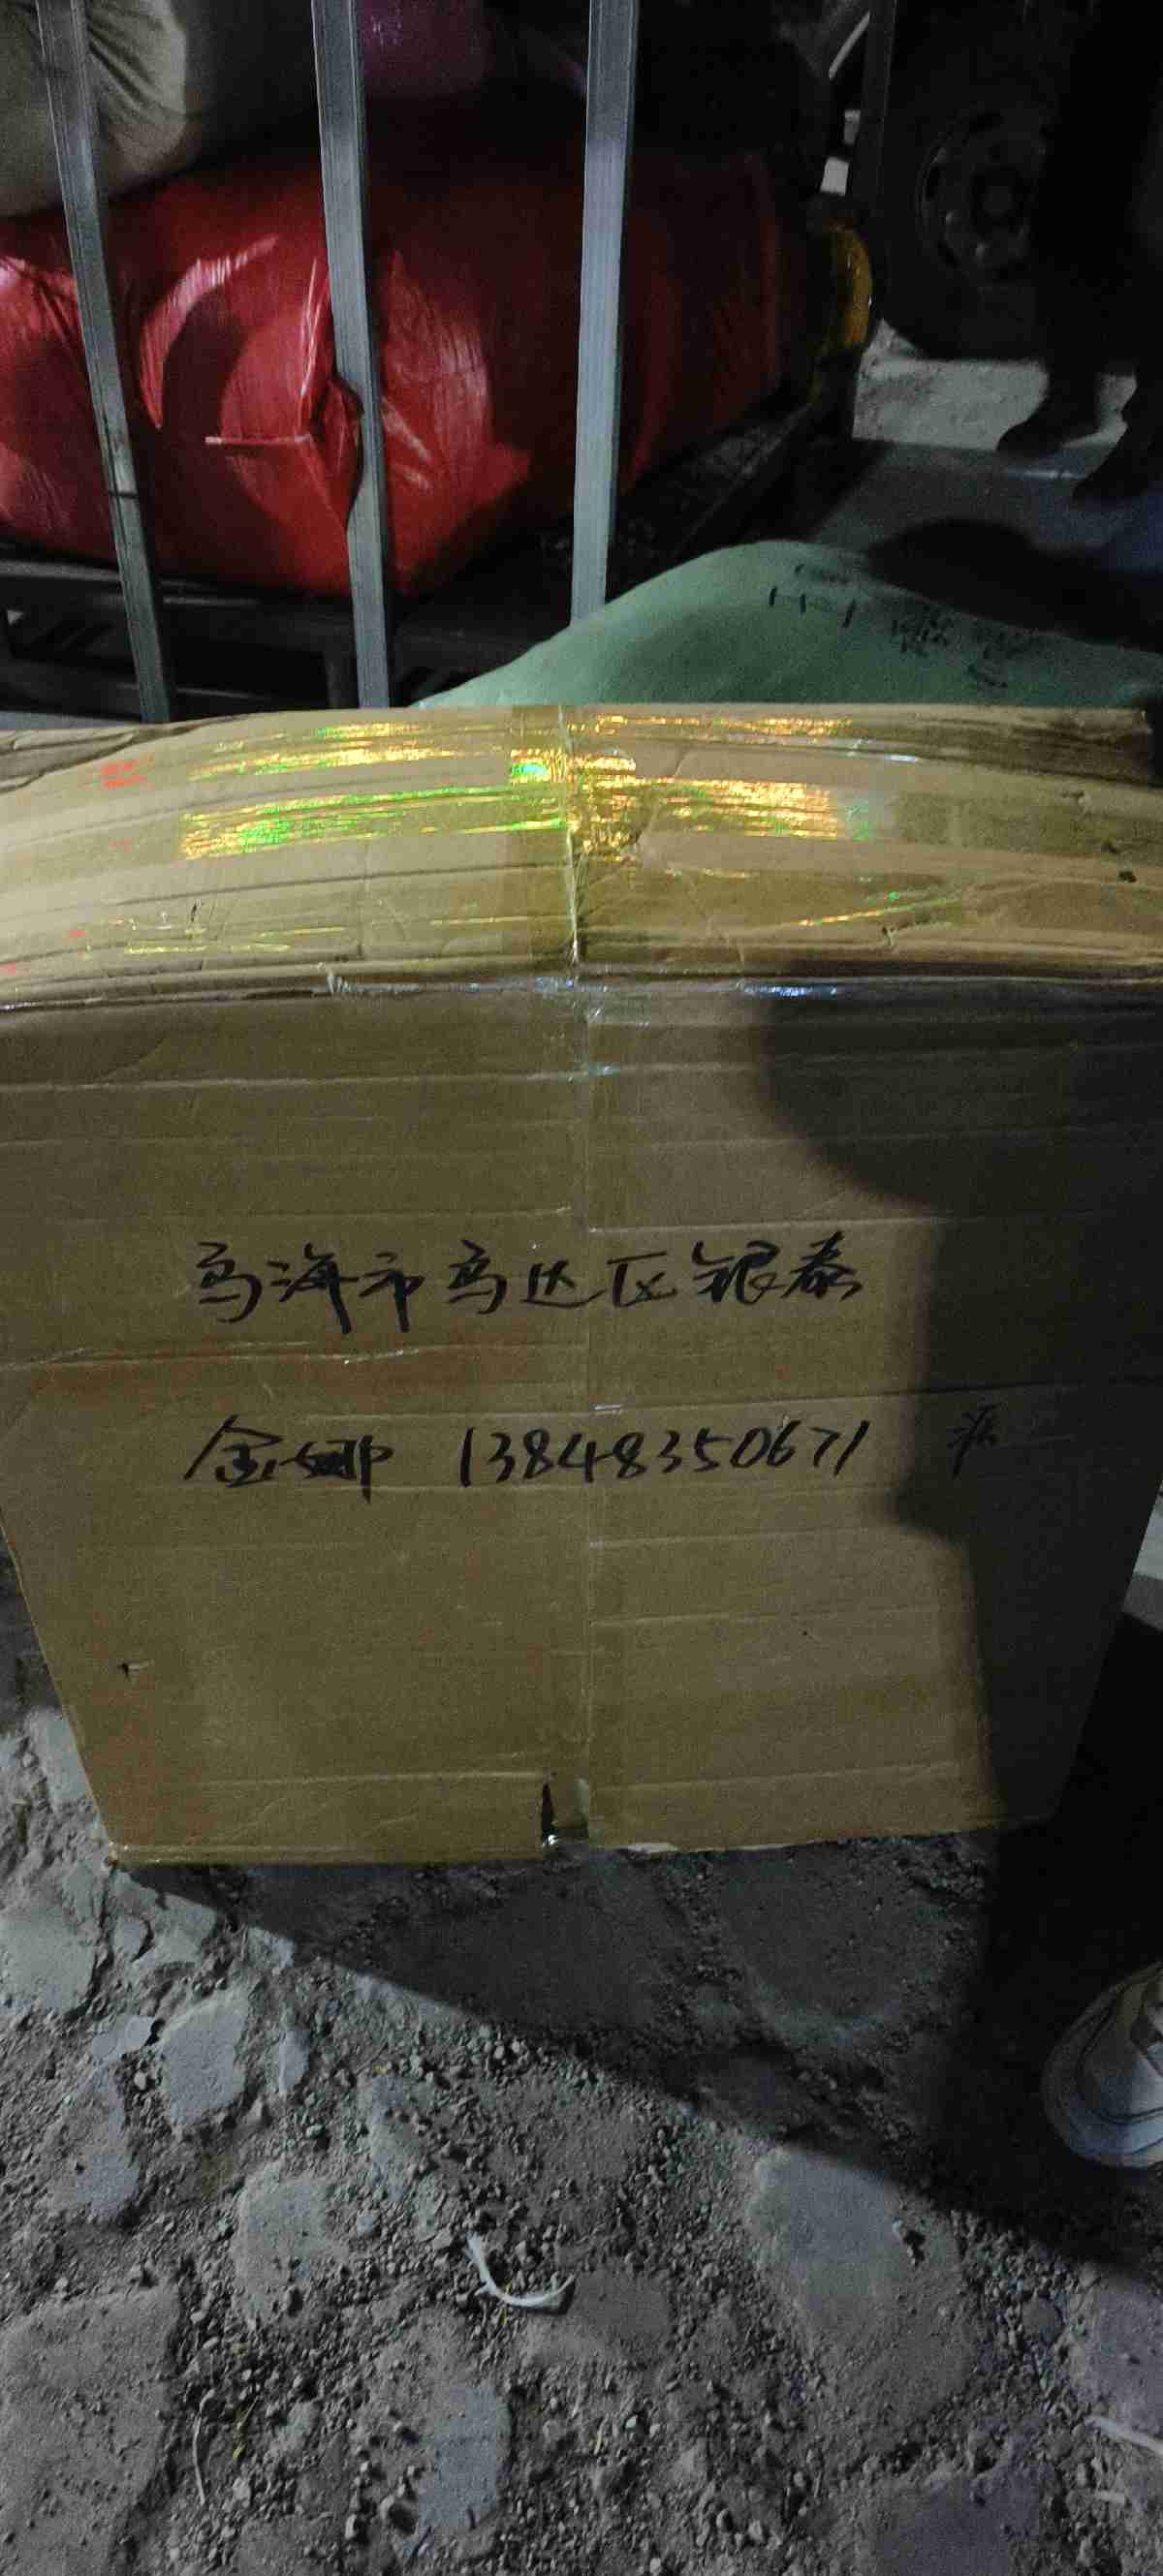 乌海市乌达区银泰
金娜 13848350671